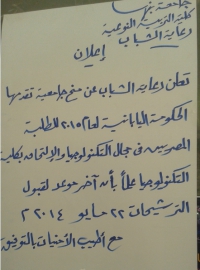 جامعة بنها
كلية التربية النوعية
رعاية الشباب
إعلان
تعلن رعاية الشباب عن منح جامعية تقدمها
الحكومة اليابانية لعام ٢٠١٥ للطلبة
المصريين فى مجال التكنولوجيا والالتحاق بكلية
التكنولوجيا علماً بأن آخر موعد لقبول
الترشيحات ٢٢ مايو ٢٠١٤
مع أطيب الأمنيات بالتوفيق